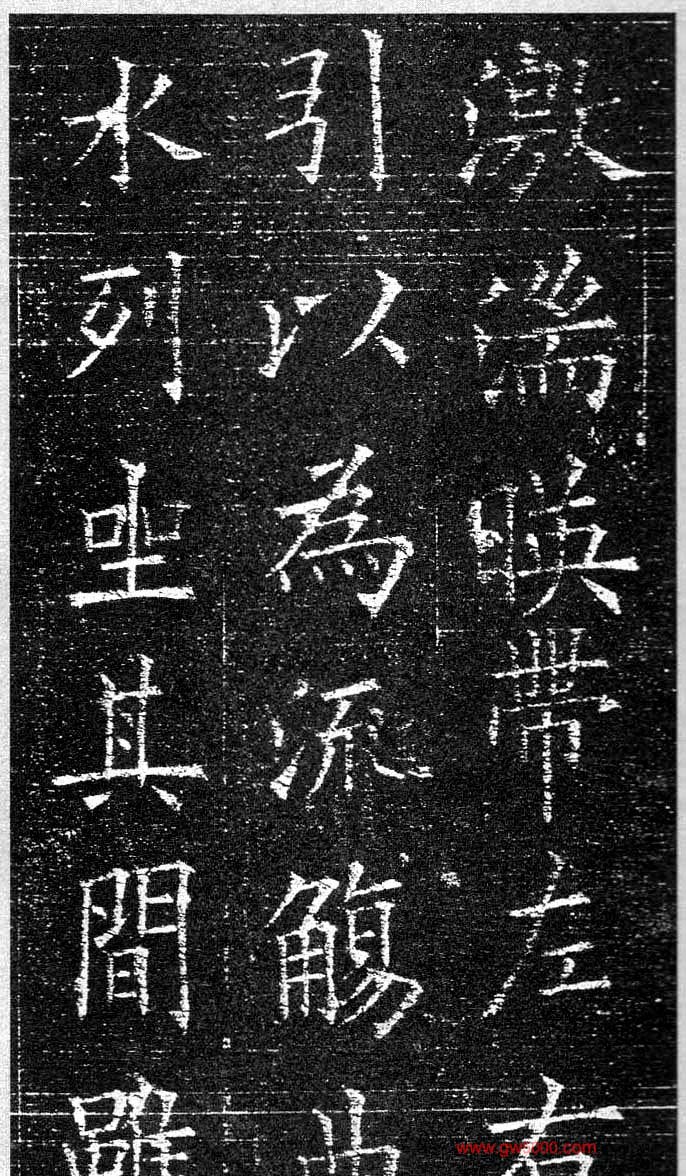 激湍暎帶左右
引以為流觴曲
水列坐其間雖
www.gw5000.com